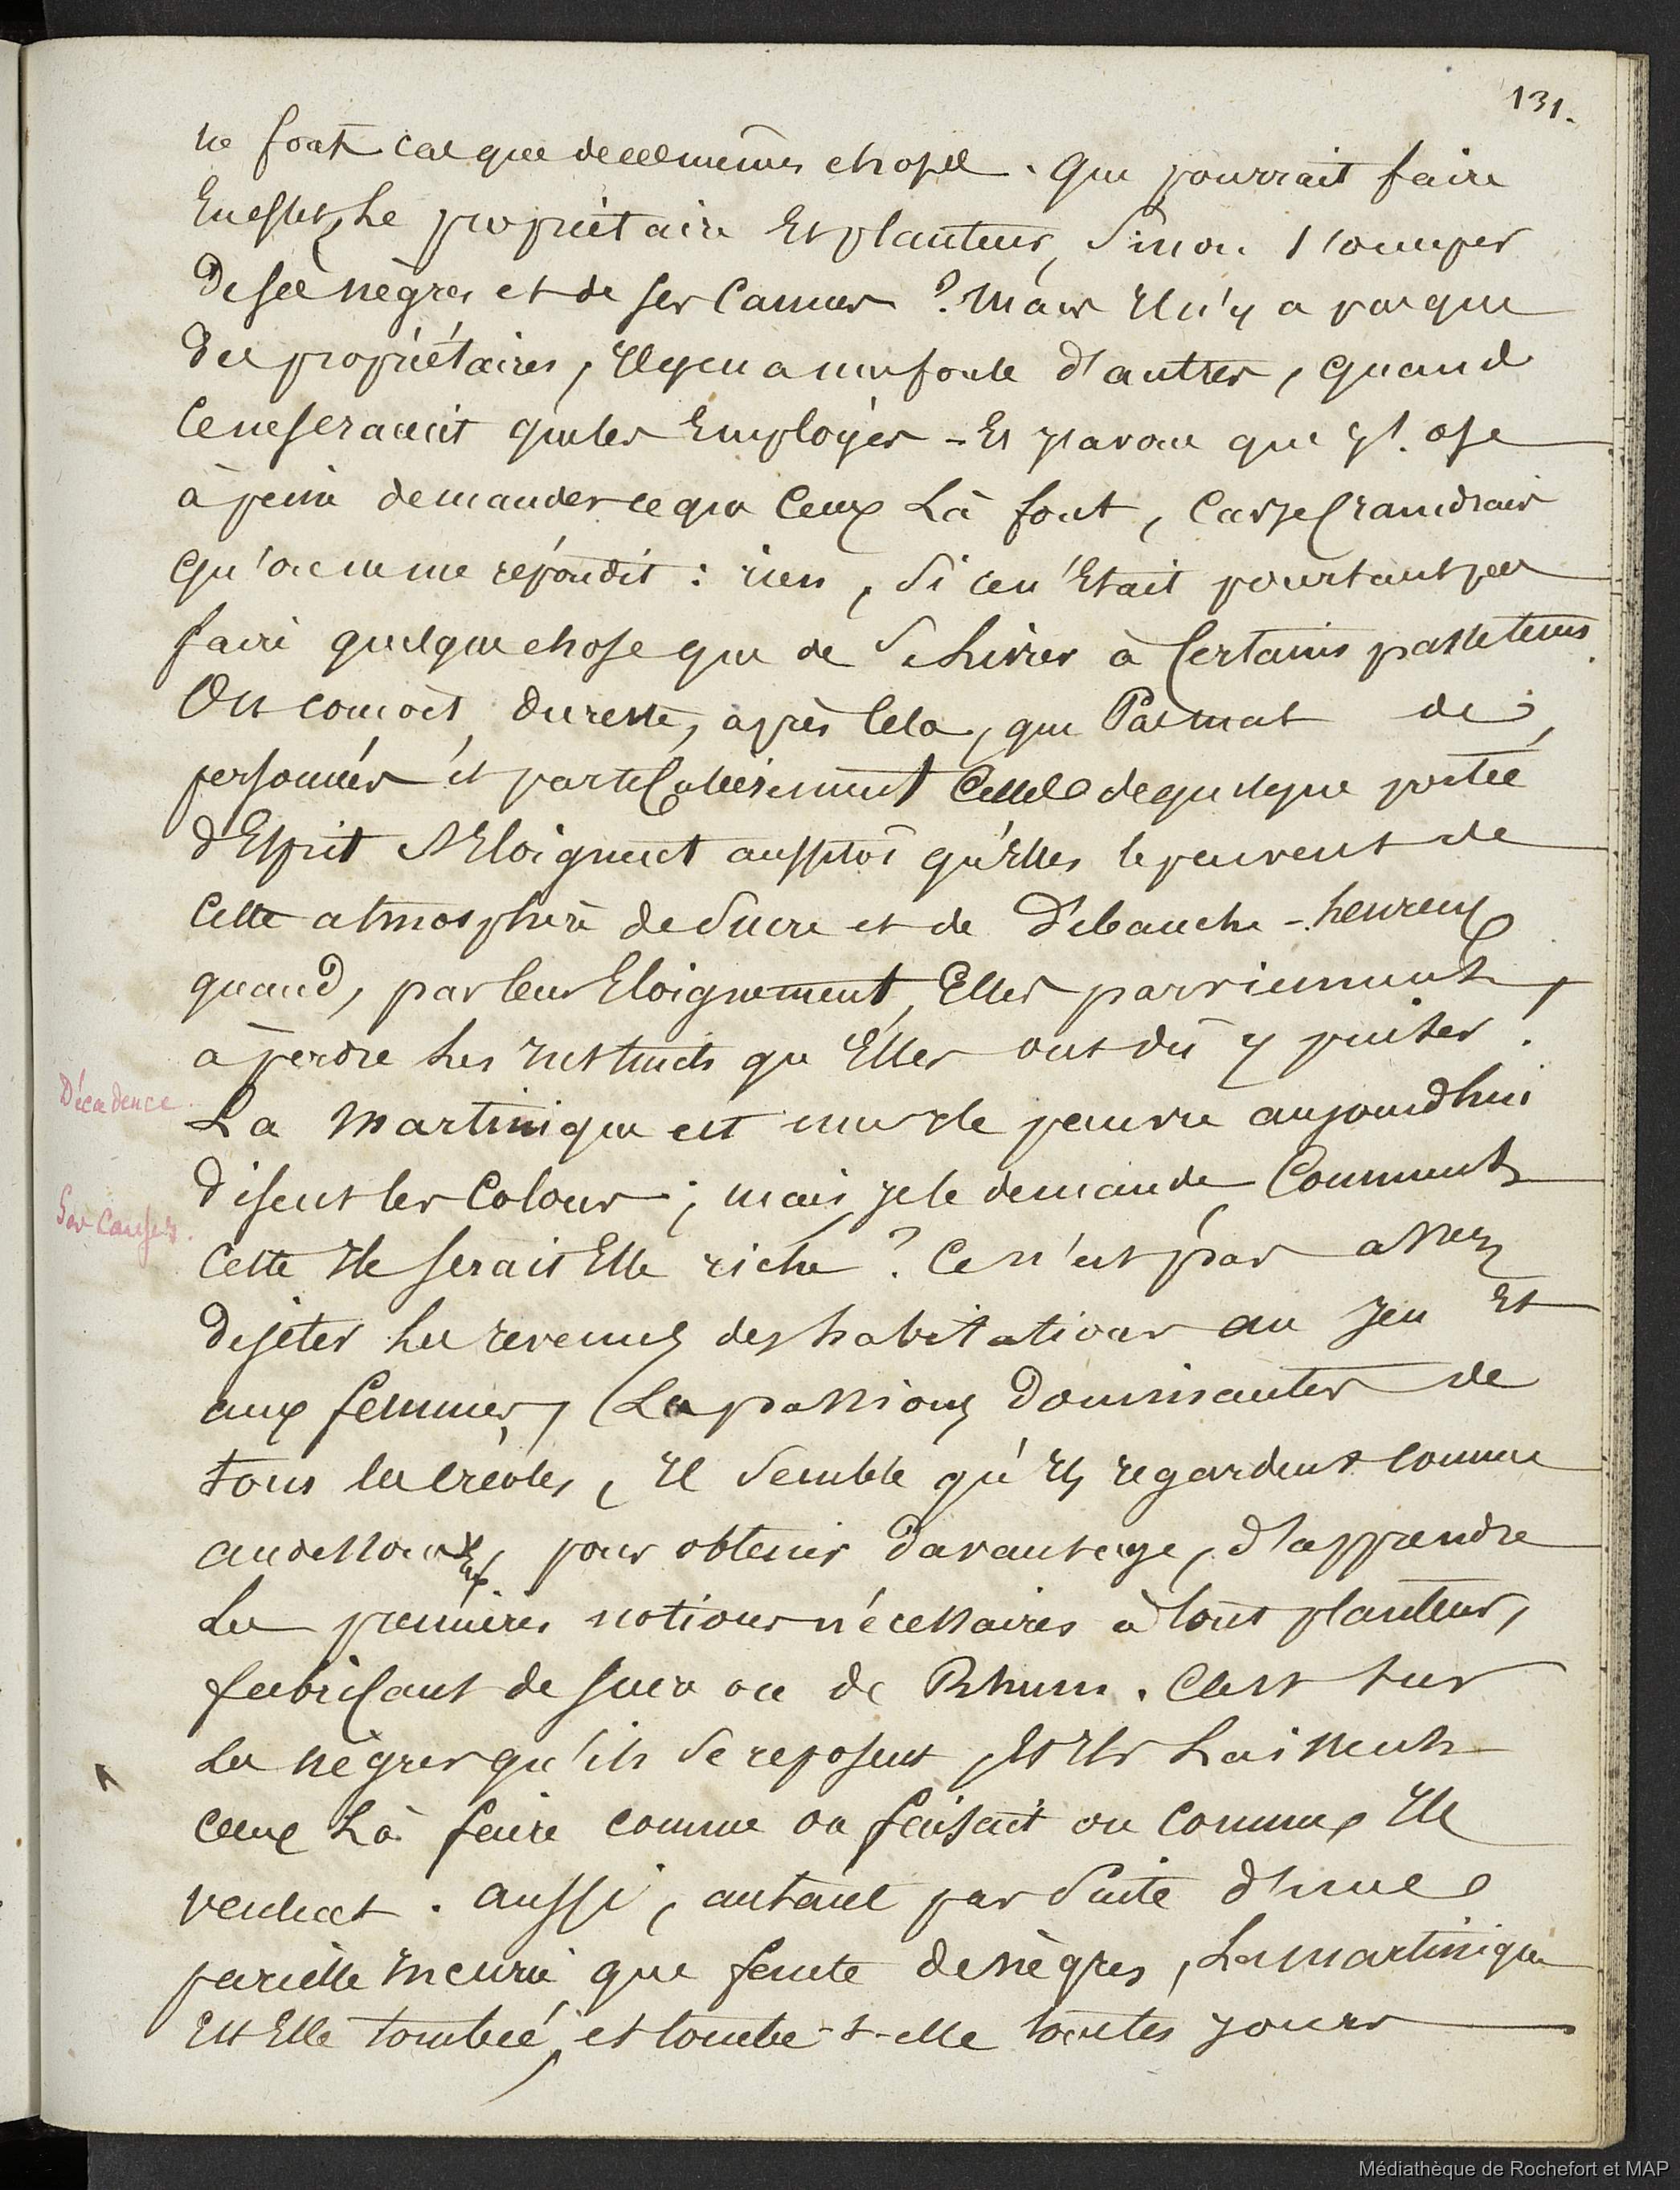 131.
ne font car que de ces mêmes choses. Que pourrait faire
En effet, Le propriétaire Et planteur, Sinon s'occuper
De ses nègres et de ses Cannes ? Mais Il n'y a pas que
Des propriétaires, Il y en a une foule d'autres, quand
Ce ne seraient que les Employés - Et j'avoue que j'ose
à peine demander ce que Ceux Là font, Car je Craindrais
qu'on ne me répondit : rien, Si ce n'Etait pourtant pas
faire quelque chose que de Se Livrer à Certains passetems.
On conçoit, du reste, après Cela, que de
personnes et particulièrement Celles de quelque portée
d'Esprit S'Eloignent aussitôt qu'Elles le peuvent de
Cette atmosphère de Sucre et de Débauche - heureux
quand, par leur Eloignement, Elles parviennent,
à perdre Les Instincts qu'Elles ont dû y puiser !
Décadence.
La Martinique est une Ile pauvre aujourdhui
disent les Colons ; mais, je le demande, Comment
Ses Causes.
Cette Ile serait Elle riche ? Ce n'est pas assez
De jeter Les revenus des habitations au Jeu Et
aux femmes, (Les passions Dominantes de
tous les créoles, Il Semble qu'Ils regardent comme
au dessous d'Eux, pour obtenir Davantage, d'apprendre
Les premières notions nécessaires à tout planteur,
fabricant de sucre ou de Rhum. C'est sur
Les nègres qu'ils Se reposent, Et Ils Laissent
Ceux Là faire comme on faisait ou Comme Ils
veulent. Aussi, autant par Suite d'une
pareille Incurie que faute de nègres, La Martinique
Est Elle tombée, et tombe-t-elle tous les jours